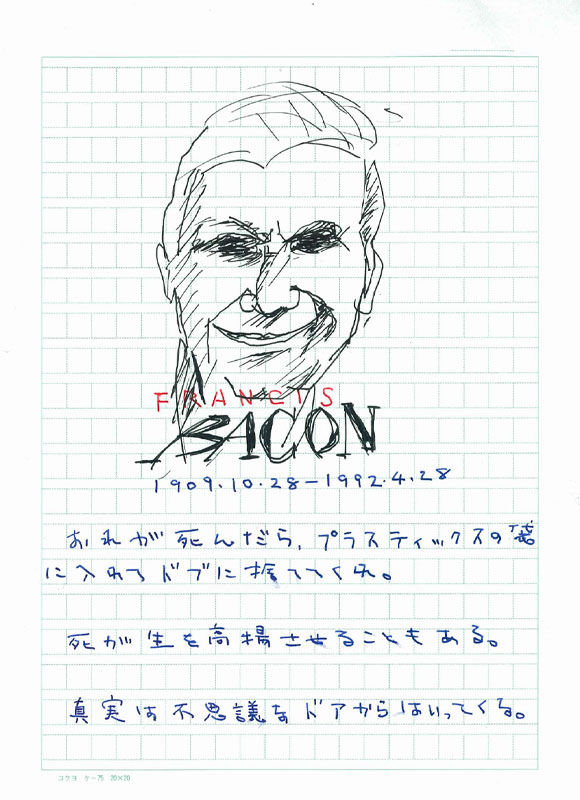 FRANCIS
BACON
1909.10.28-1992.4.28
おれが死んだら、プラスティックスの袋
に入れてドブに捨ててくれ。
死が生を高揚させることもある。
真実は不思議なドアからはいってくる。
コクヨ ケー75 20×20